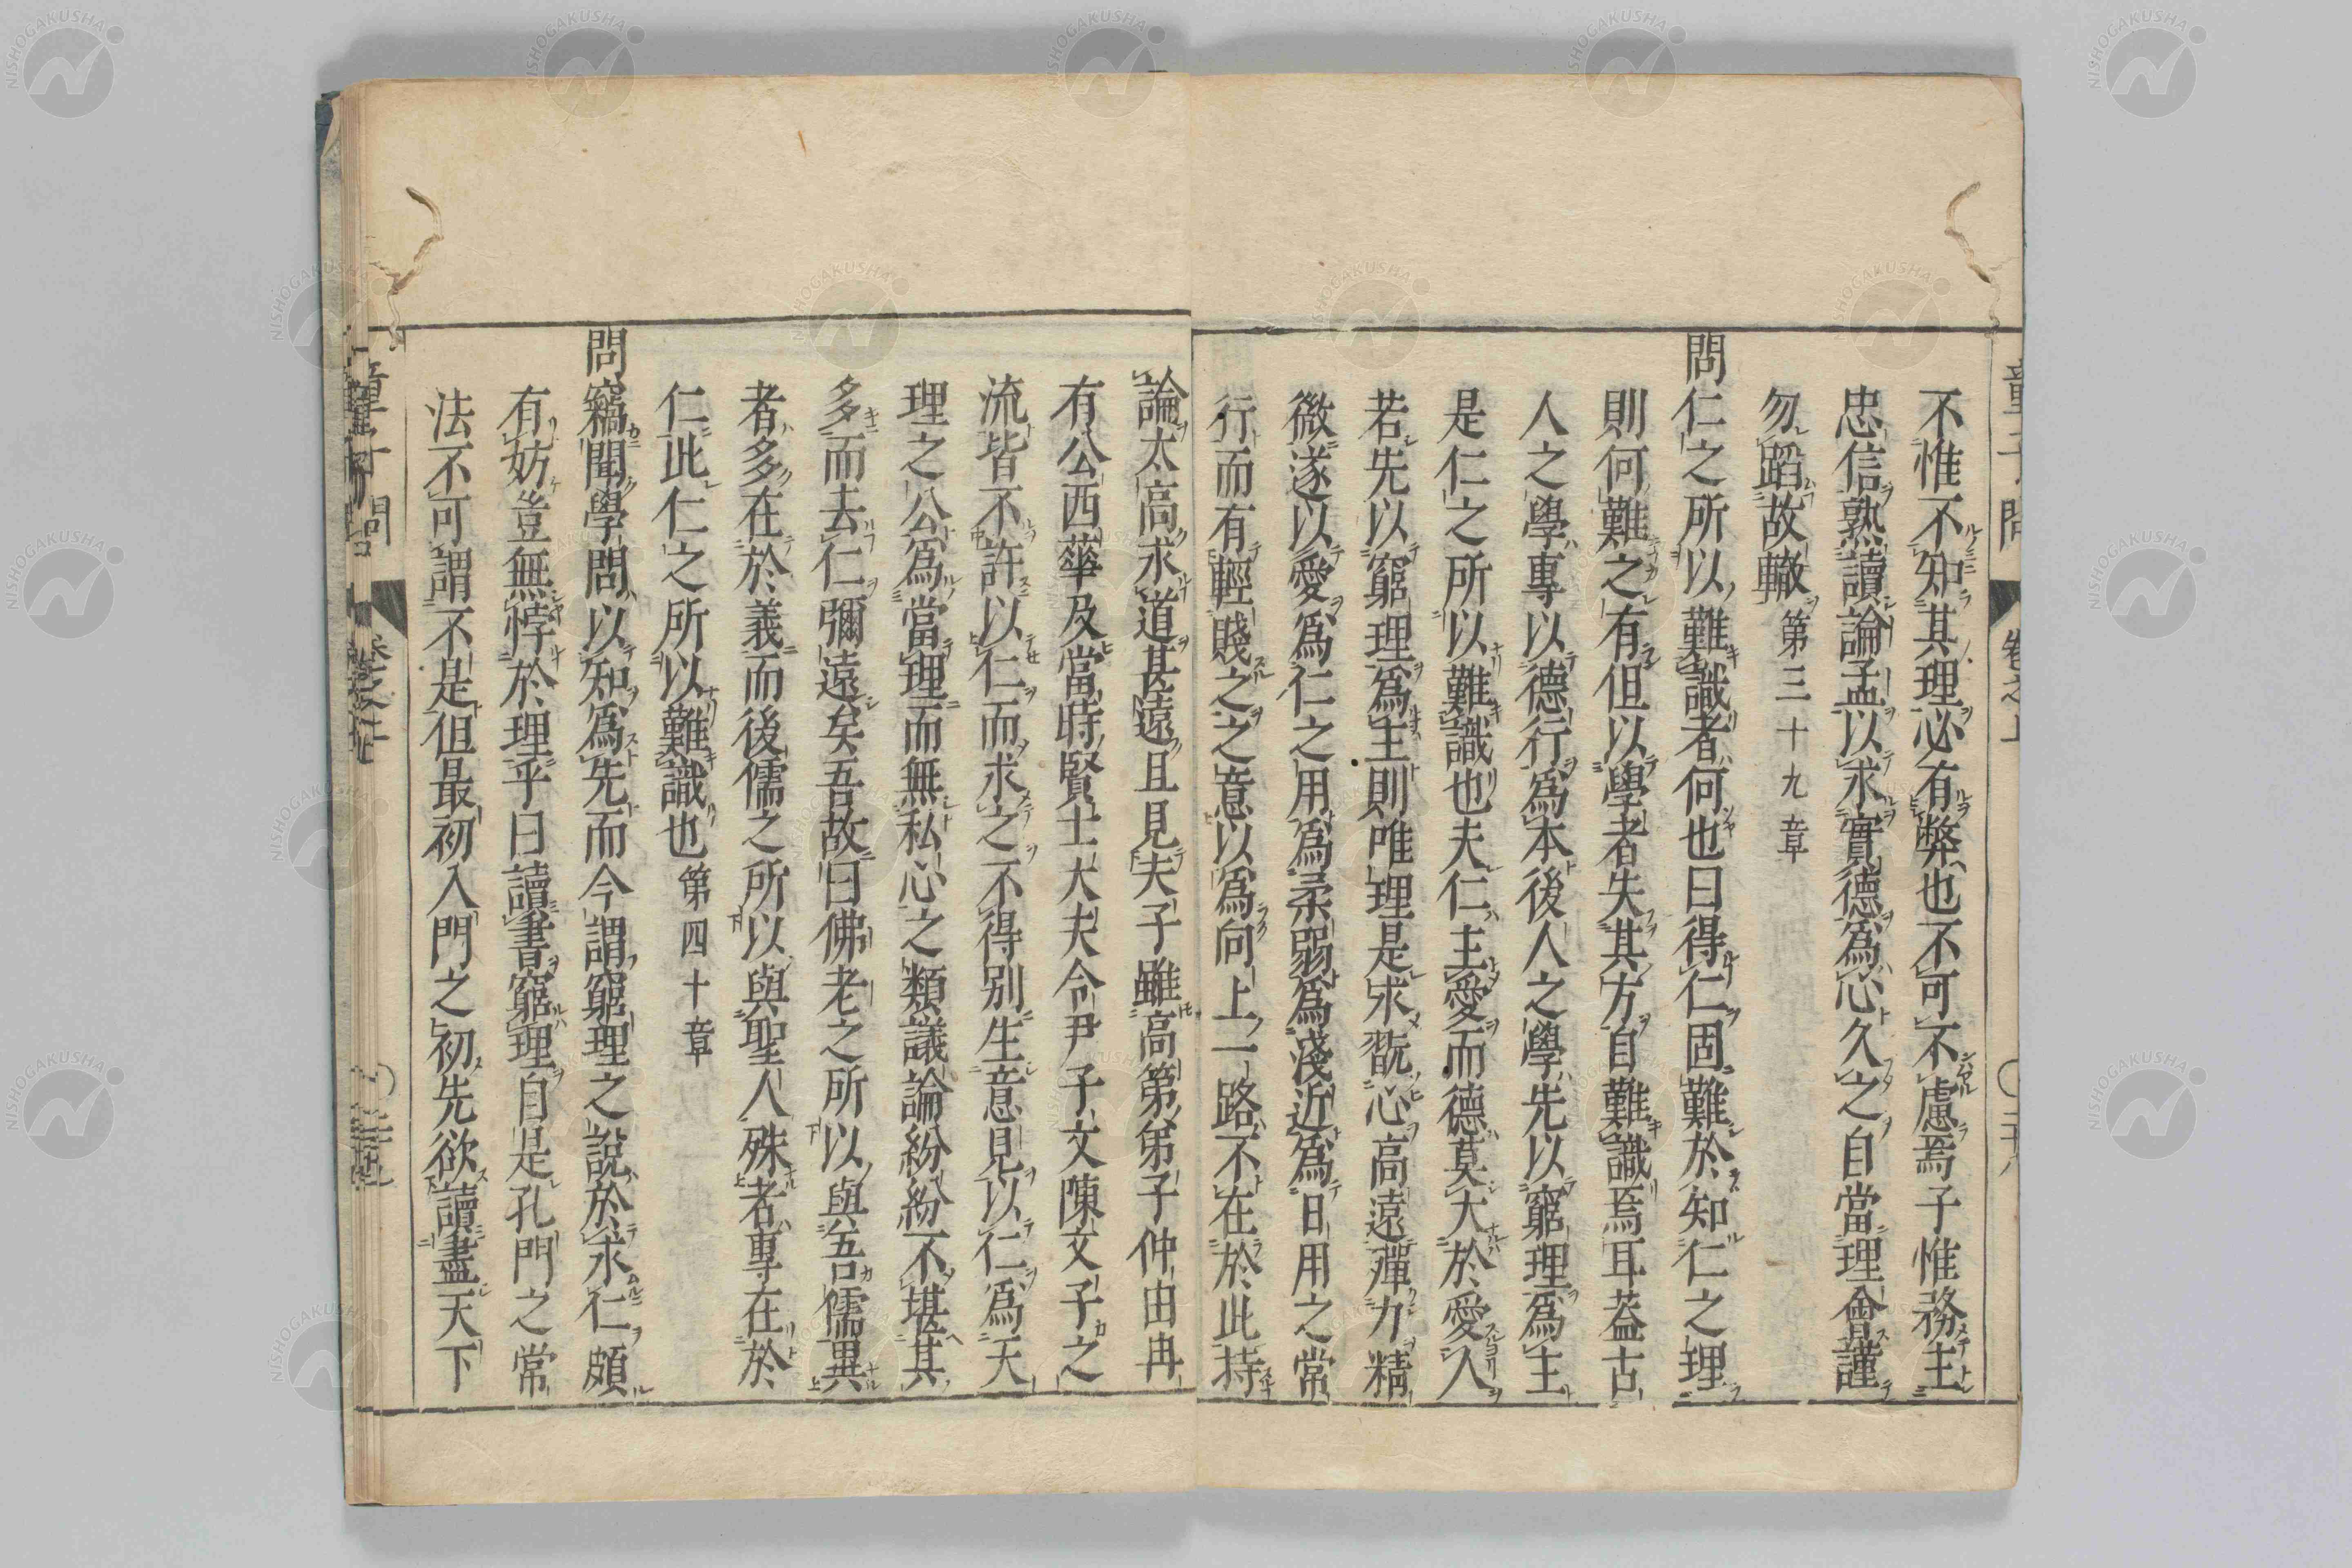 不惟不知其理必有弊也不可不慮焉子惟務主
忠信熟讀論孟以求實德爲心久之自當理會謹
勿蹈故轍第三十九章
問仁之所以難識者何也曰得仁固難於知仁之理
則何難之有但以學者失其方自難識焉耳蓋古
人之學專以德行爲本後人之學先以窮理爲主
是仁之所以難識也夫仁主愛而德莫大於愛人
若先以窮理爲主則唯理是求翫心高遠殫力精
微遂以愛爲仁之用爲柔弱爲淺近爲日用之常
行而有輕賤之之意以爲向上一路不在於此持
論太高求道甚遠且見夫子雖高第弟子仲由冉
有公西華及當時賢士大夫令尹子文陳文子之
流皆不許以仁而求之不得別生意見以仁爲天
理之公爲當理而無私心之類議論紛紛不堪其
多而去仁彌遠矣吾故曰佛老之所以與吾儒異
者多在於義而後儒之所以與聖人殊者專在於
仁此仁之所以難識也第四十章
問竊聞學問以知爲先而今謂窮理之說於求仁頗
有妨豈無悖於理乎曰讀書窮理自是孔門之常
法不可謂不是但最初入門之初先欲讀盡天下
童子問
卷之上
NISHOGAKUSHA